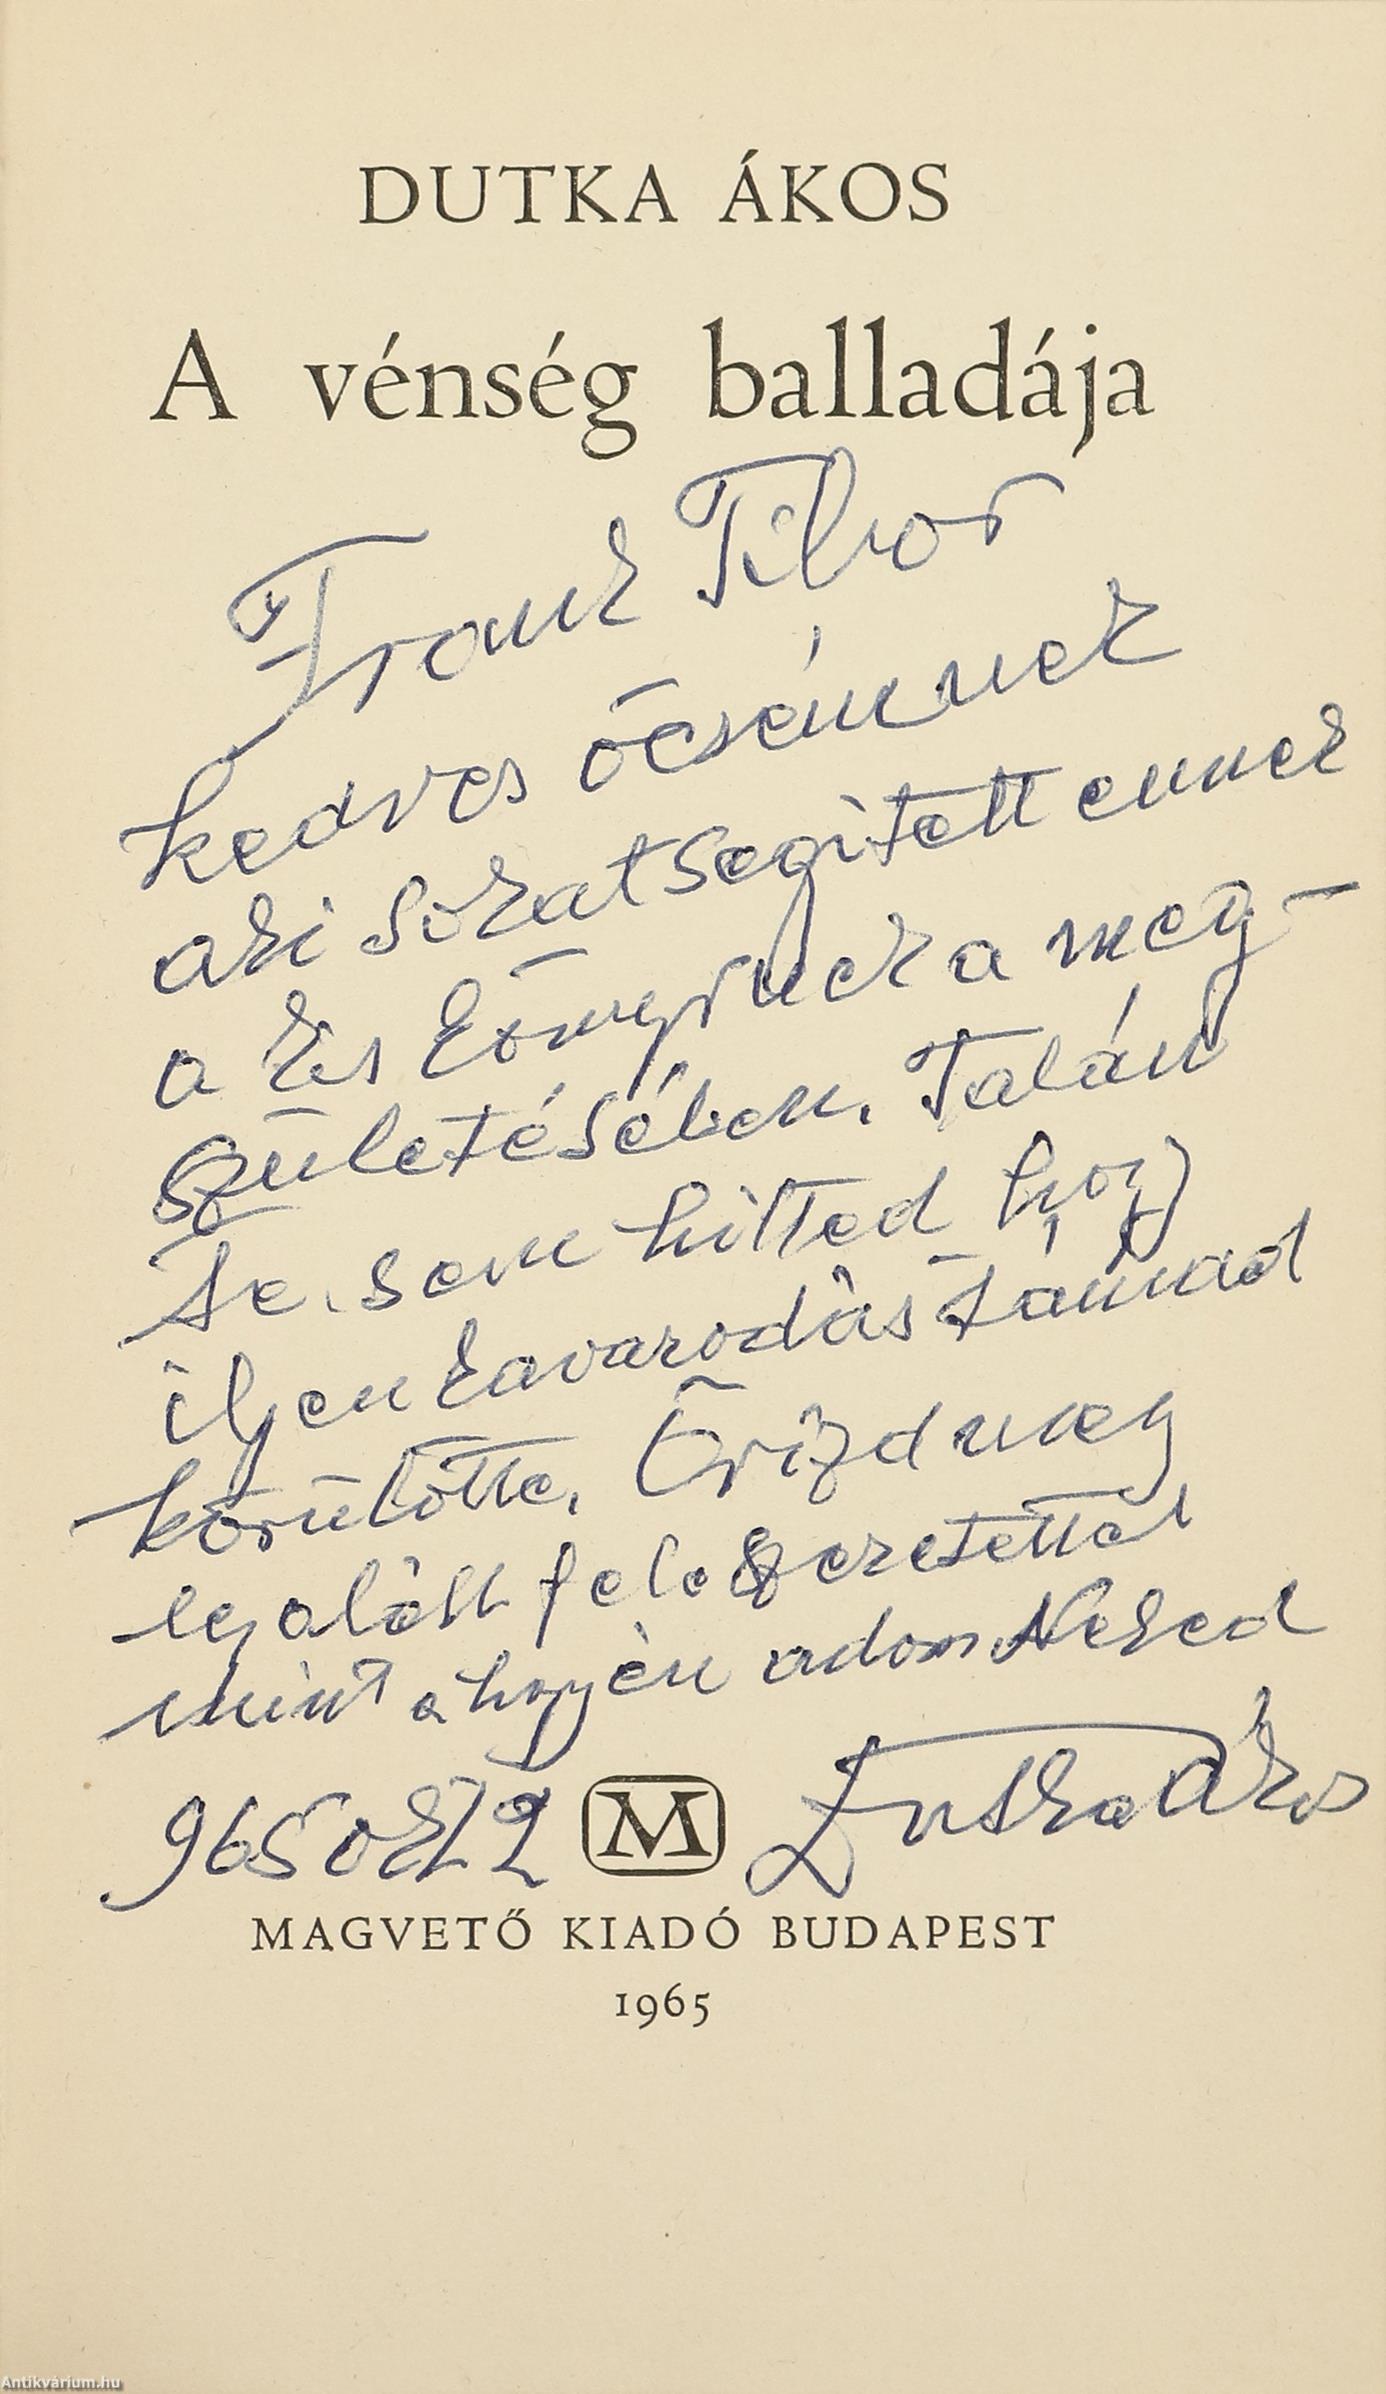 DUTKA ÁKOS
A vénség balladája
Frank Tibor
kedves öcsémnek
aki sokat segitett ennek
a kis könyvnek a meg-
születésében. Talán
te sem hitted hogy
iljen kavarodás támad
körülötte. Őrizd meg
legalább fele szeretettel
mint ahogy én adom Neked
965 okt 2
Dutka Ákos
M
MAGVETŐ KIADÓ BUDAPEST
1965
Antikvárium.hu